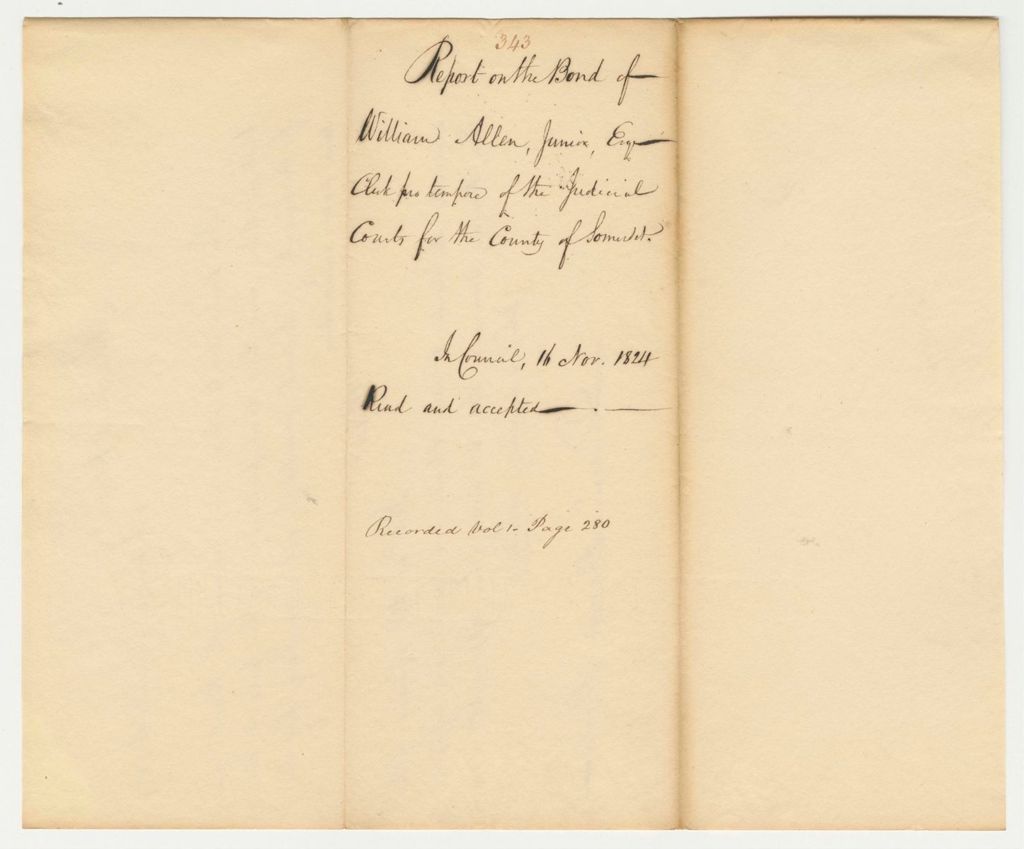 343
Report on the Bond of
William Allen, Junior, Esqr
Clerk pro tempore of the Judicial
Courts for the County of Somerset.
In Council, 16 Nov. 1824
Read and accepted
Recorded Vol 1- Page 280